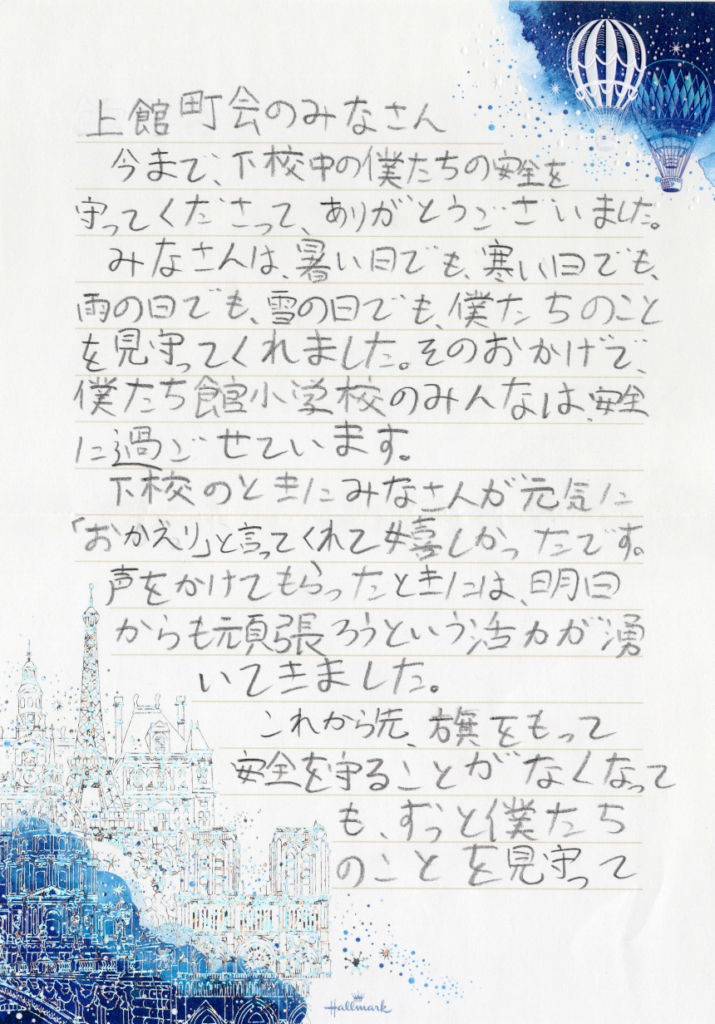 上館町会のみなさん
今まで、下校中の僕たちの安全を
守ってくださって、ありがとうございました。
みなさんは、暑い日でも、寒い日でも、
雨の日でも、雪の日でも、僕たちのこと
を見守ってくれました。そのおかげで、
僕たち館小学校のみんなは、安全
に過ごせています。
下校のときにみなさんが元気に
「おかえり」と言ってくれて嬉しかったです。
声をかけてもらったときには、明日
からも頑張ろうという活力が湧
いてきました。
これから先、旗をもって
安全を守ることがなくなって
も、ずっと僕たち
のことを見守って
Hallmark